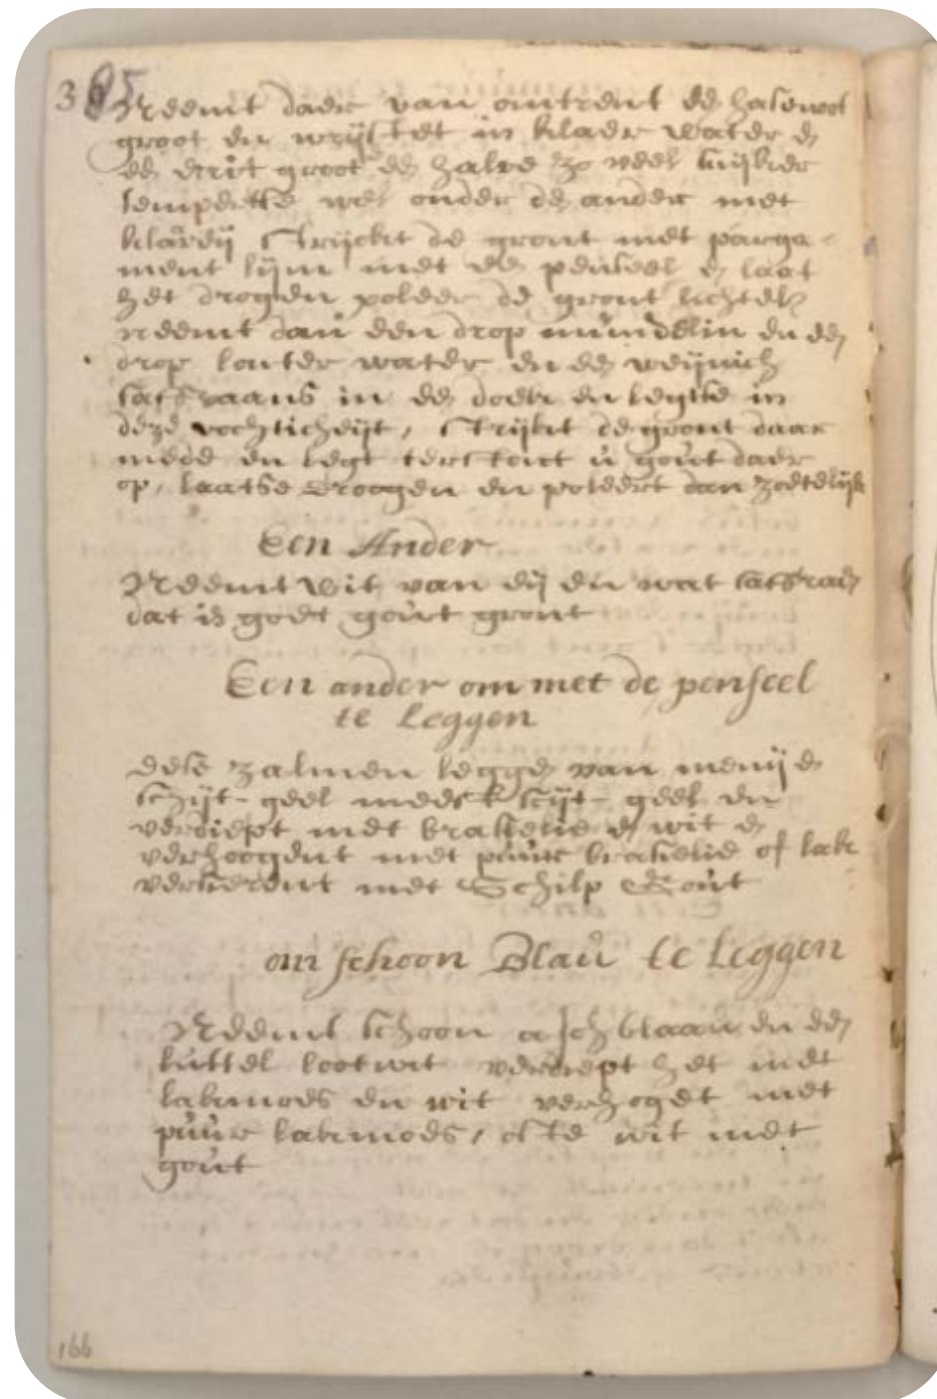 365
Neemt daer van omtrent ee hasenoot
groot en wrijftet in klaer water e
ee erit groot ee halve zo veel suijker
tempertse wel onder de ander met
klareij strijckt de gront met parga-
ment lijm met ee penseel e laat
het drogen poleer de gront lichtel
neemt dan een drop mundelin en ee
drop louter water en ee weijnich
saffraans in ee doeck en legtse in
deze vochticheijt, strijkt de gront daar
mede en legt terstont u gout daer
op, laatse droogen en poleert dan zoetelijk
Een Ander
Neemt wit van eij en wat saffraen
dat is goet gout gront
Een ander om met de penseel
te Leggen
dese zalmen legge van menij e
schijt-geel meest scijt-geel en
verdiept met brasielie e wit e
verhoogent met puur brasielie of lak
versierent met Schilp Gout
om schoon Blau te Leggen
Neemt schoon aschblaau en ee
luttel lootwit verdiept het met
lakmoes en wit verhoget met
puur lakmoes, ofte wit met
gout
166